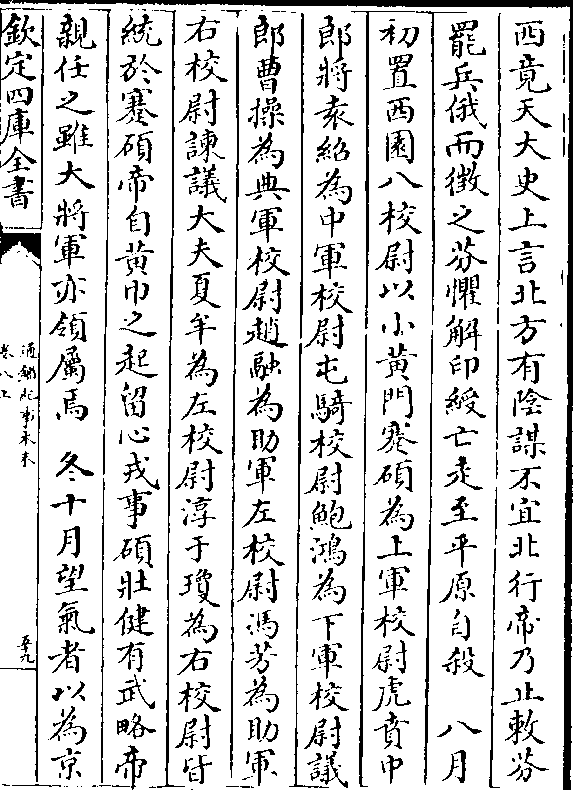 西竟天大史上言北方有陰謀不宜北行帝乃止敕芬
罷兵俄而徴之芬懼解印綬亡走至平原自殺　八月
初置西園八校尉以小黄門蹇碩為上軍校尉虎賁中
郎將袁紹為中軍校尉屯騎校尉鮑鴻為下軍校尉議
郎曹操為典軍校尉趙融為助軍左校尉馮芳為助軍
右校尉諫議大夫夏牟為左校尉淳于瓊為右校尉皆
統於蹇碩帝自黄巾之起留心戎事碩壯健有武略帝
親任之雖大將軍亦領屬焉　冬十月望氣者以為京
欽定四庫全書
通鑑紀事本末
卷八上
五十九